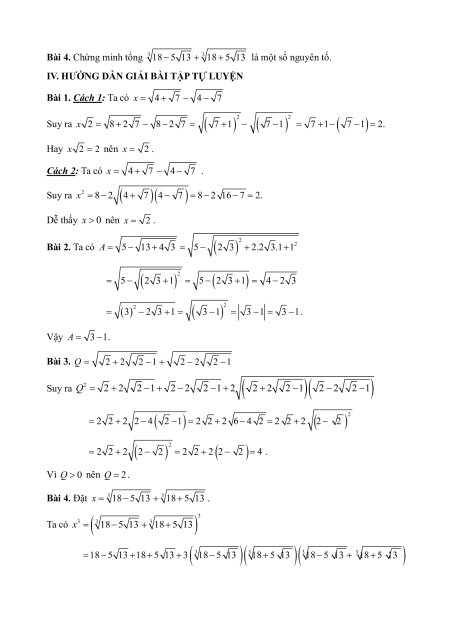 Bài 4. Chứng minh tổng ∛(18−5√13) + ∛(18+5√13) là một số nguyên tố.
IV. HƯỚNG DẪN GIẢI BÀI TẬP TỰ LUYỆN
Bài 1. Cách 1: Ta có x = √(4+√7) − √(4−√7)
Suy ra x√2 = √(8+2√7) − √(8−2√7) = √((√7+1)²) − √((√7−1)²) = √7+1−(√7−1) = 2.
Hay x√2 = 2 nên x = √2 .
Cách 2: Ta có x = √(4+√7) − √(4−√7) .
Suy ra x² = 8−2√((4+√7)(4−√7)) = 8−2√(16−7) = 2.
Dễ thấy x > 0 nên x = √2 .
Bài 2. Ta có A = √(5−√(13+4√3)) = √(5−√((2√3)²+2.2√3.1+1²))
= √(5−√((2√3+1)²)) = √(5−(2√3+1)) = √(4−2√3)
= √((√3)²−2√3+1) = √((√3−1)²) = |√3−1| = √3−1 .
Vậy A = √3−1.
Bài 3. Q = √(√2+2√(√2−1)) + √(√2−2√(√2−1))
Suy ra Q² = √2+2√(√2−1)+√2−2√(√2−1)+2√((√2+2√(√2−1))(√2−2√(√2−1)))
= 2√2+2√(2−4(√2−1)) = 2√2+2√(6−4√2) = 2√2+2√((2−√2)²)
= 2√2+2√((2−√2)²) = 2√2+2(2−√2) = 4 .
Vì Q > 0 nên Q = 2 .
Bài 4. Đặt x = ∛(18−5√13) + ∛(18+5√13) .
Ta có x³ = (∛(18−5√13) + ∛(18+5√13))³
= 18−5√13+18+5√13+3(∛(18−5√13))(∛(18+5√13))(∛(18−5√13) + ∛(18+5√13))